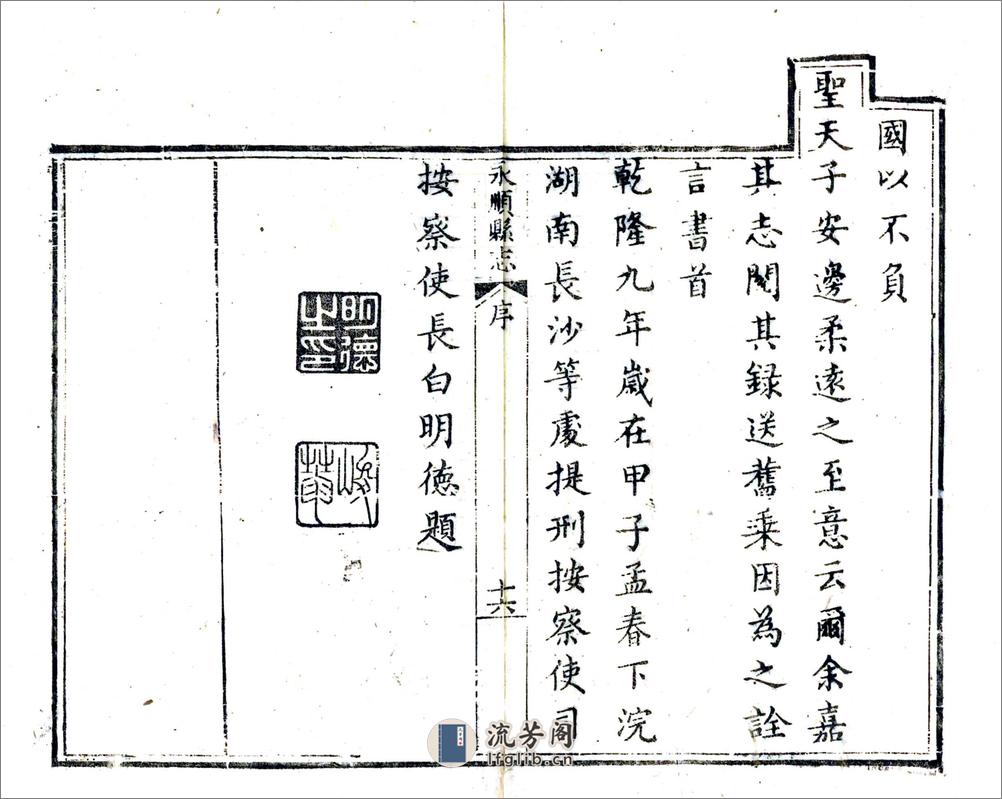 國以不負
聖天子安邊柔遠之至意云爾余嘉
其志閱其録送舊乘因為之詮
言書首
乾隆九年歲在甲子孟春下浣
湖南長沙等處提刑按察使司
永順縣志
序
十六
按察使長白明德題
明德之印
流芳阁
lfglib.cn